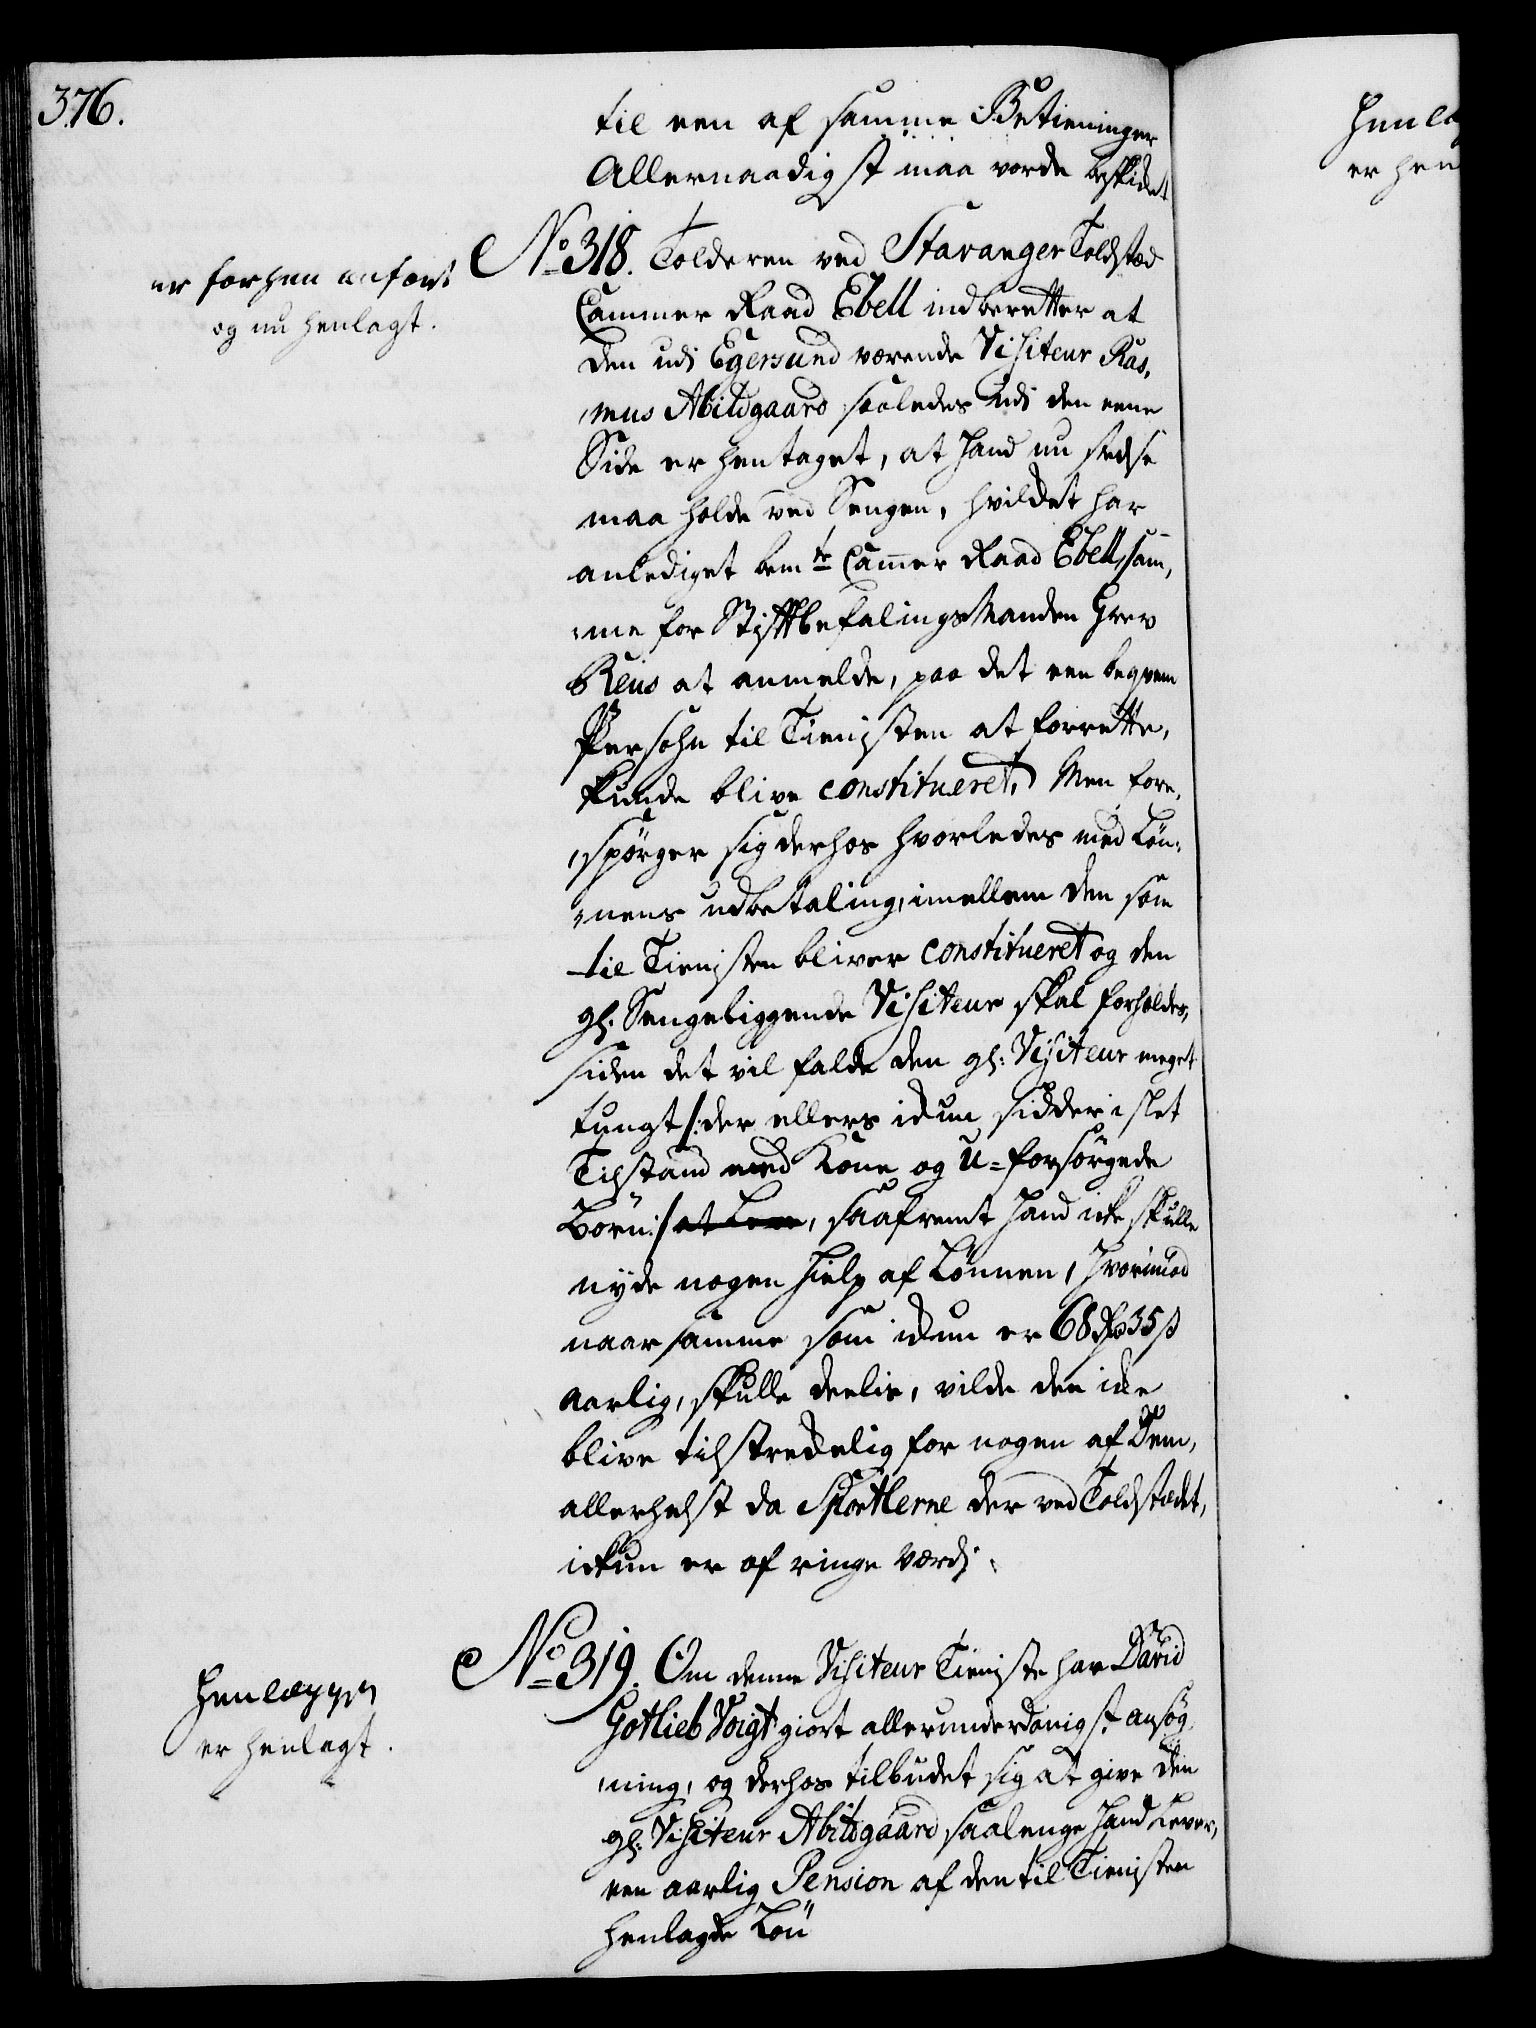 376.
til een af samme Betieninger
Allernaadigst maa vorde beskicket
er forhen anført
og nu henlagt.
No 318. Tolderen ved Stavanger Toldsted
Cammer Raad Ebell indberetter at
den udi Egersund værende Visiteur Ras,
,mus Abildgaard saaledes udi den eene
Side er hentaget, at hand nu stedse
maa holde ved Sengen, hvilcket har
anlediget bemte Cammer Raad Ebell, sam,
,me for Stiftbefalings Manden Grev
Reus at anmelde, paa det een beqvem
Persohn til Tienisten at forrette,
kunde blive constitueret, Men fore,
,spörger sig derhos hvorledes med Lön,
,nens udbetaling, imellem den som
til Tienisten bliver constitueret og den
gl. Sengeliggende Visiteur skal forholdes,
siden det vil falde den gl: Visiteur meget
tungt /: der ellers ickun sidder i slet
Tilstand med Kone og U-forsörgede
Börn :/ at Leve, saafremt hand icke skulle
nyde nogen Hielp af Lönnen, hvorimod
naar samme som ickun er 68 Rd 35 ß
aarlig, skulle deelis, vilde den icke
blive tilstreckelig for nogen af Dem,
allerhelst da Sportlerne der ved Toldstedet,
ickun er af ringe Værdj.
Henlægges
er henlagt.
No 319. Om denne Visiteur Tieniste har David
Gotlieb Voigt giort allerunderdanigst ansög,
,ning, og derhos tilbudet sig at give den
gl. Visiteur Abildgaard saalenge hand Lever,
een aarlig Pension af den til Tienisten
henlagde Lön
er hen